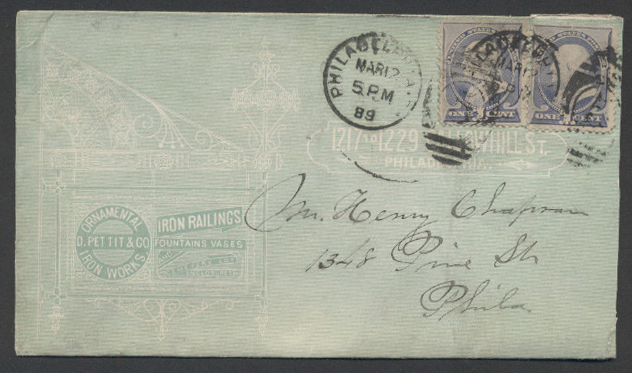 PHILADELPHIA
MAR 12
5 PM
89
PHILADELPHIA
MAR 12
ONE CENT
ONE CENT
1217 TO 1229 ST.
PHILADELPHIA.
ORNAMENTAL
D. PETTIT & CO
IRON WORKS
IRON RAILINGS
FOUNTAINS VASES
Mr. Henry Chapman
1348 Pine St
Phila.